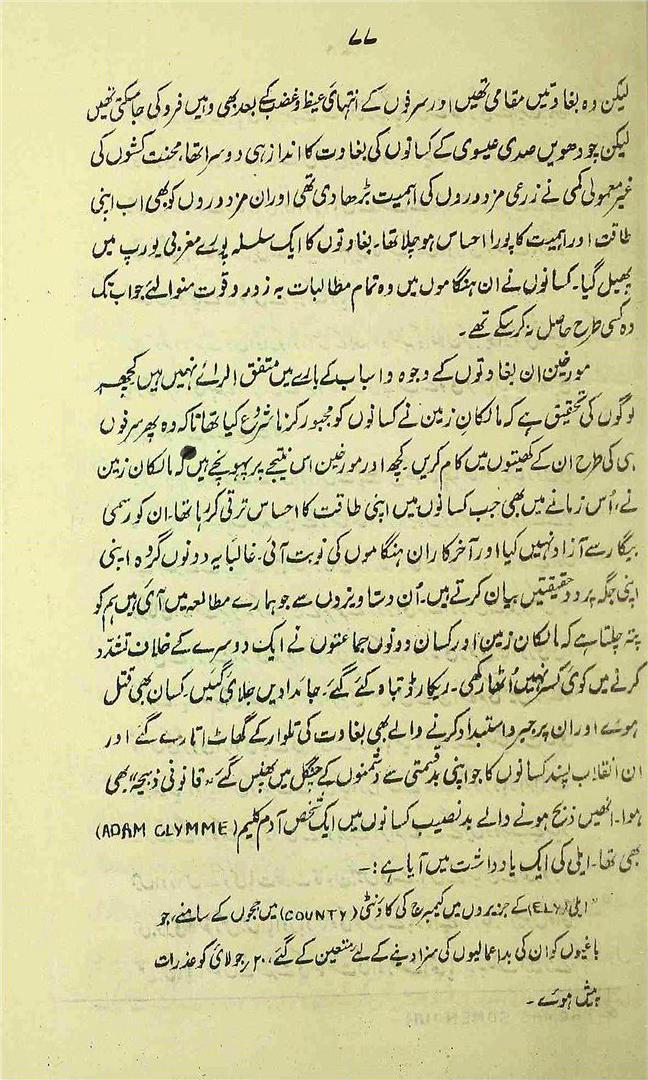 ۷۷
لیکن وہ بغاوتیں مقامی تھیں اور سرفوں کے انتہائی غیظ و غضب کے بعد بھی وہیں فرو کی جاسکتی تھیں
لیکن چودھویں صدی عیسوی کے کسانوں کی بغاوت کا انداز ہی دوسرا تھا، محنت کشوں کی
غیر معمولی کمی نے زرعی مزدوروں کی اہمیت بڑھا دی تھی اور ان مزدوروں کو بھی اب اپنی
طاقت اور اہمیت کا پورا احساس ہو چلا تھا۔ بغاوتوں کا ایک سلسلہ پورے مغربی یورپ میں
پھیل گیا۔ کسانوں نے ان ہنگاموں میں وہ تمام مطالبات بہ زور و قوت منوا لئے جو اب تک
وہ کسی طرح حاصل نہ کرسکے تھے۔
مورخین ان بغاوتوں کے وجوہ و اسباب کے بارے میں متفق الرائے نہیں ہیں کچھ
لوگوں کی تحقیق ہے کہ مالکانِ زمین نے کسانوں کو مجبور کرنا شروع کیا تھا تاکہ وہ پھر سرفوں
ہی کی طرح ان کے کھیتوں میں کام کریں۔ کچھ اور مورخین اس نتیجے پر پہونچے ہیں کہ مالکان زمین
نے، اُس زمانے میں بھی جب کسانوں میں اپنی طاقت کا احساس ترقی کر رہا تھا۔ ان کو رسمی
بیگار سے آزاد نہیں کیا اور آخر کار ان ہنگاموں کی نوبت آئی۔ غالباً یہ دونوں گروہ اپنی
اپنی جگہ پر دو حقیقتیں بیان کرتے ہیں۔ اُن دستاویزوں سے جو ہمارے مطالعہ میں آئی ہیں ہم کو
پتہ چلتا ہے کہ مالکان زمین اور کسان دونوں جماعتوں نے ایک دوسرے کے خلاف تشدّد
کرنے میں کوئی کسر نہیں اُٹھا رکھی۔ ریکارڈ تباہ کئے گئے۔ جائدادیں جلائی گئیں۔ کسان بھی قتل
ہوئے اور ان پر جبر و استبداد کرنے والے بھی بغاوت کی تلوار کے گھاٹ اتارے گئے اور
ان انقلاب پسند کسانوں کا جو اپنی بدقسمتی سے دشمنوں کے چنگل میں پھنس گئے "قانونی ذبیحہ" بھی
ہوا۔ انھیں ذبح ہونے والے بدنصیب کسانوں میں ایک شخص آدم کلیم (ADAM CLYMME)
بھی تھا۔ ایلی کی ایک یادداشت میں آیا ہے:۔
"ایلی (ELY) کے جزیروں میں کیمبرج کی کاؤنٹی (COUNTY) میں ججوں کے سامنے، جو
باغیوں کو ان کی بداعمالیوں کی سزا دینے کے لئے متعین کے گئے، ۲۰ر جولائی کو عذرات
پیش ہوئے۔